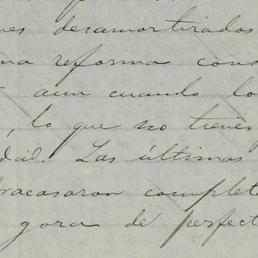 nes desamortizados
na reforma cons
aun cuando lo
, lo que no tienen
dad. Las últimas
fracasaron completa
gora de perfect